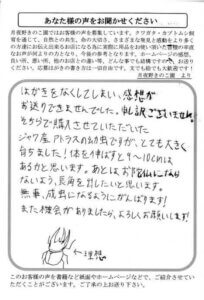 あなたの声をお聞かせください
月夜野きのこ園ではお客様の声を募集しています。クワガタ・カブトムシ飼育を通して、自然の大切さ、命の大切さ、さまざまな発見と感動をより多くの方達にお伝え出来るお店になる為に実際に商品をお使い頂いた皆様の率直なお声が何よりの力となり、今後の参考となります。商品の感想、ホームページの感想、良い所、悪い所、他のお店との違い等、どんな事でも結構ですので、お送りください。応募はがきの書き方は一切自由です。文でも絵でも大歓迎です！
月夜野きのこ園 より
はがきをなくしてしまい、感想が
お送りできませんでした。申し訳ございません。
そちらで購入させていただいた
ジャワ産アトラスの幼虫ですが、とても大きく
育ちました！体を伸ばすと9〜10cmは
あるかと思います。あとはお陀仏にならな
いよう、長角を出したいと思います。
無事、成虫になるようにがんばります！
また機会がありましたら、よろしくお願いします！
←理想
このお客様の声を書籍など紙面やホームページなどで、ご紹介させていただくことがございます。ご了承の上お送りください。